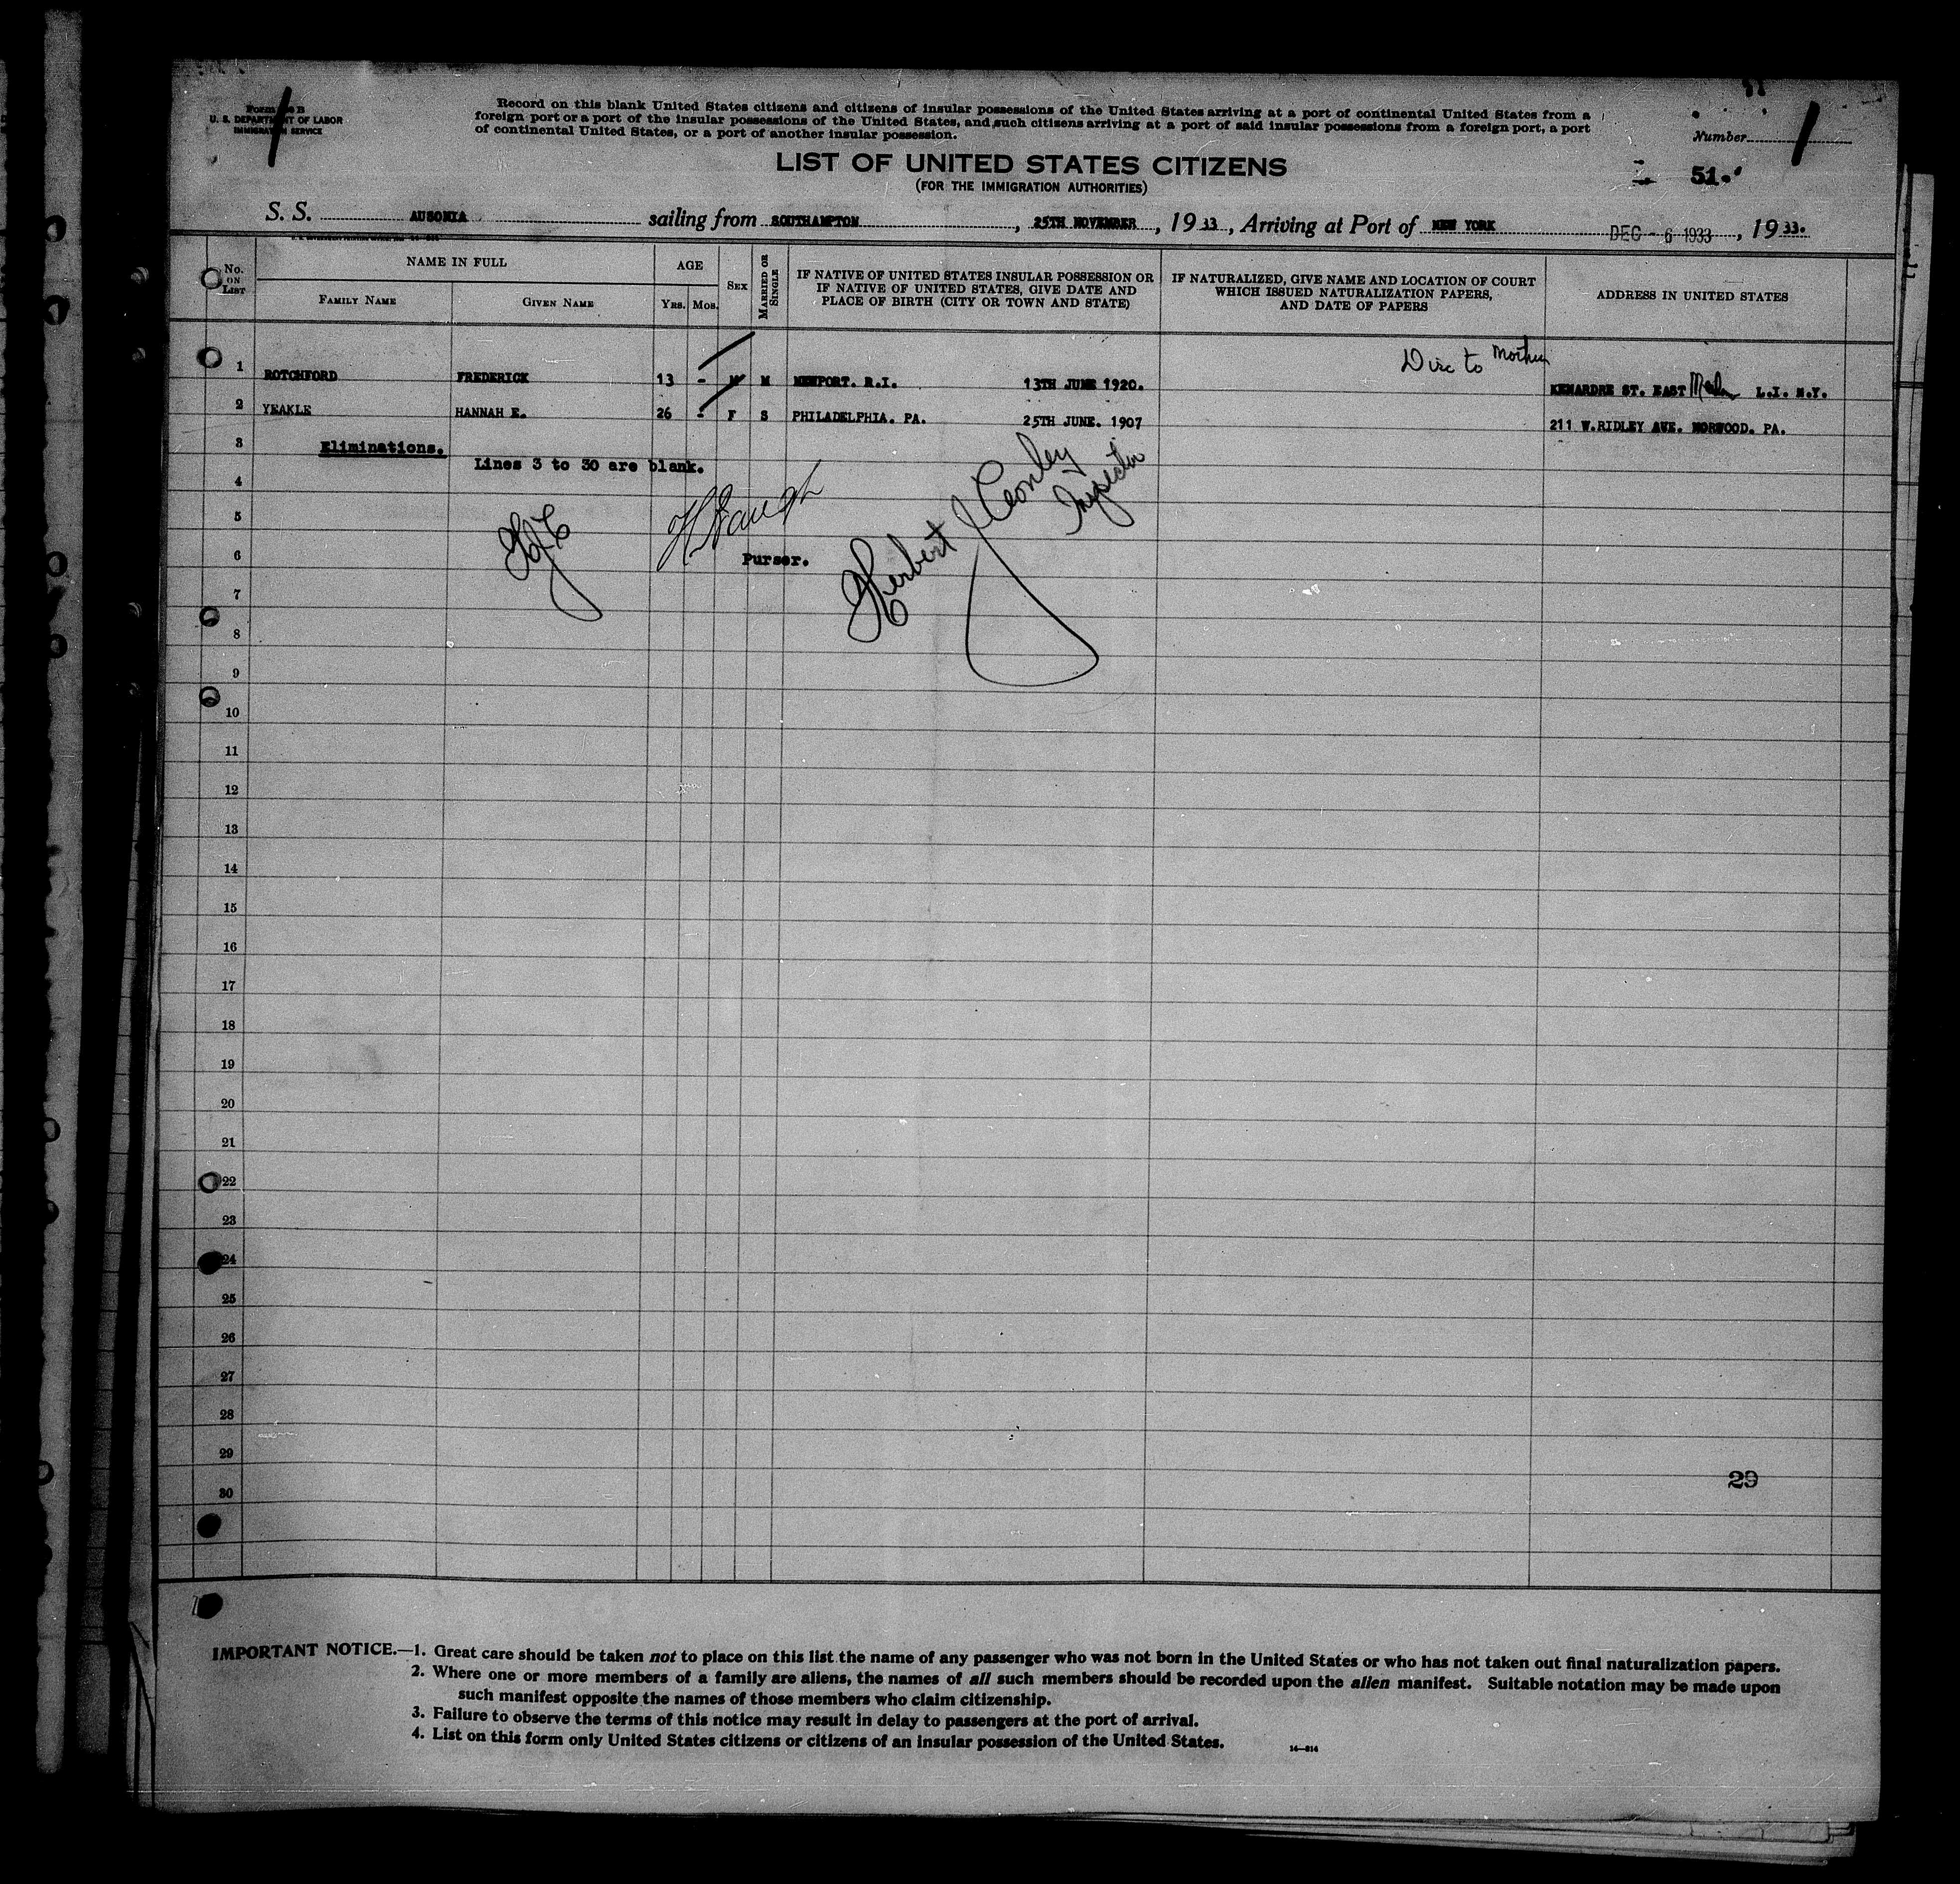 U. S. DEPARTMENT OF LABOR
IMMIGRATION SERVICE
Record on this blank United States citizens and citizens of insular possessions of the United States arriving at a port of continental United States from a
foreign port or a port of the insular possessions of the United States, and such citizens arriving at a port of said insular possessions from a foreign port, a port
of continental United States, or a port of another insular possession.
Number
LIST OF UNITED STATES CITIZENS
(FOR THE IMMIGRATION AUTHORITIES)
51.
S. S. AUSONIA sailing from SOUTHAMPTON, 25TH NOVEMBER, 1933, Arriving at Port of NEW YORK DEC - 6 1933, 1933.
No. ON LIST
NAME IN FULL
FAMILY NAME
GIVEN NAME
AGE
YRS. MOS.
SEX
MARRIED OR SINGLE
IF NATIVE OF UNITED STATES INSULAR POSSESSION OR
IF NATIVE OF UNITED STATES, GIVE DATE AND
PLACE OF BIRTH (CITY OR TOWN AND STATE)
IF NATURALIZED, GIVE NAME AND LOCATION OF COURT
WHICH ISSUED NATURALIZATION PAPERS,
AND DATE OF PAPERS
ADDRESS IN UNITED STATES
Disc to Mother
1 ROTCHFORD FREDERICK 13 - M M NEWPORT. R.I. 13TH JUNE 1920. KENARDRE ST. EAST L.I. N.Y.
2 YEAKLE HANNAH E. 26 - F S PHILADELPHIA. PA. 25TH JUNE. 1907 211 W.RIDLEY AVE. NORWOOD. PA.
3 Eliminations.
Lines 3 to 30 are blank.
4
5
6 Purser.
Herbert J Conley
Inspector
7
8
9
10
11
12
13
14
15
16
17
18
19
20
21
22
23
24
25
26
27
28
29
29
30
IMPORTANT NOTICE.—1. Great care should be taken not to place on this list the name of any passenger who was not born in the United States or who has not taken out final naturalization papers.
2. Where one or more members of a family are aliens, the names of all such members should be recorded upon the alien manifest. Suitable notation may be made upon
such manifest opposite the names of those members who claim citizenship.
3. Failure to observe the terms of this notice may result in delay to passengers at the port of arrival.
4. List on this form only United States citizens or citizens of an insular possession of the United States.
14—814